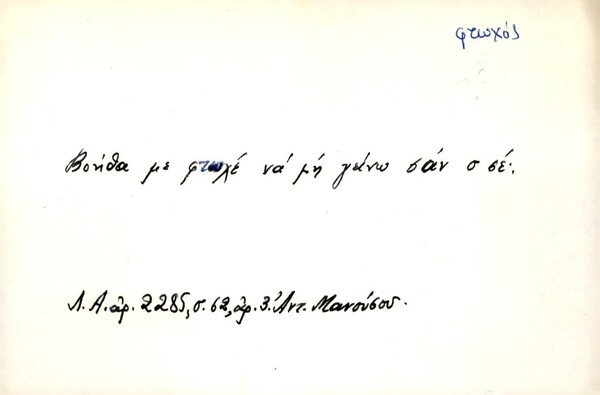 φτωχός
Βοήθα με φτωχέ νά μή γένω σάν σ σέ.
Λ.Α. ἀρ. 2285, σ. 62, ἀρ. 3. Ἀντ. Μανούσου.